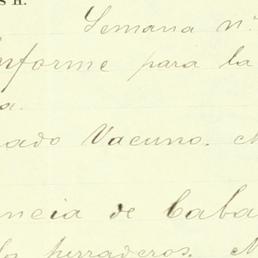 s H.
Semana nº
nforme para la
a.
ado Vacuno.
ncia de Caba
herraderos.